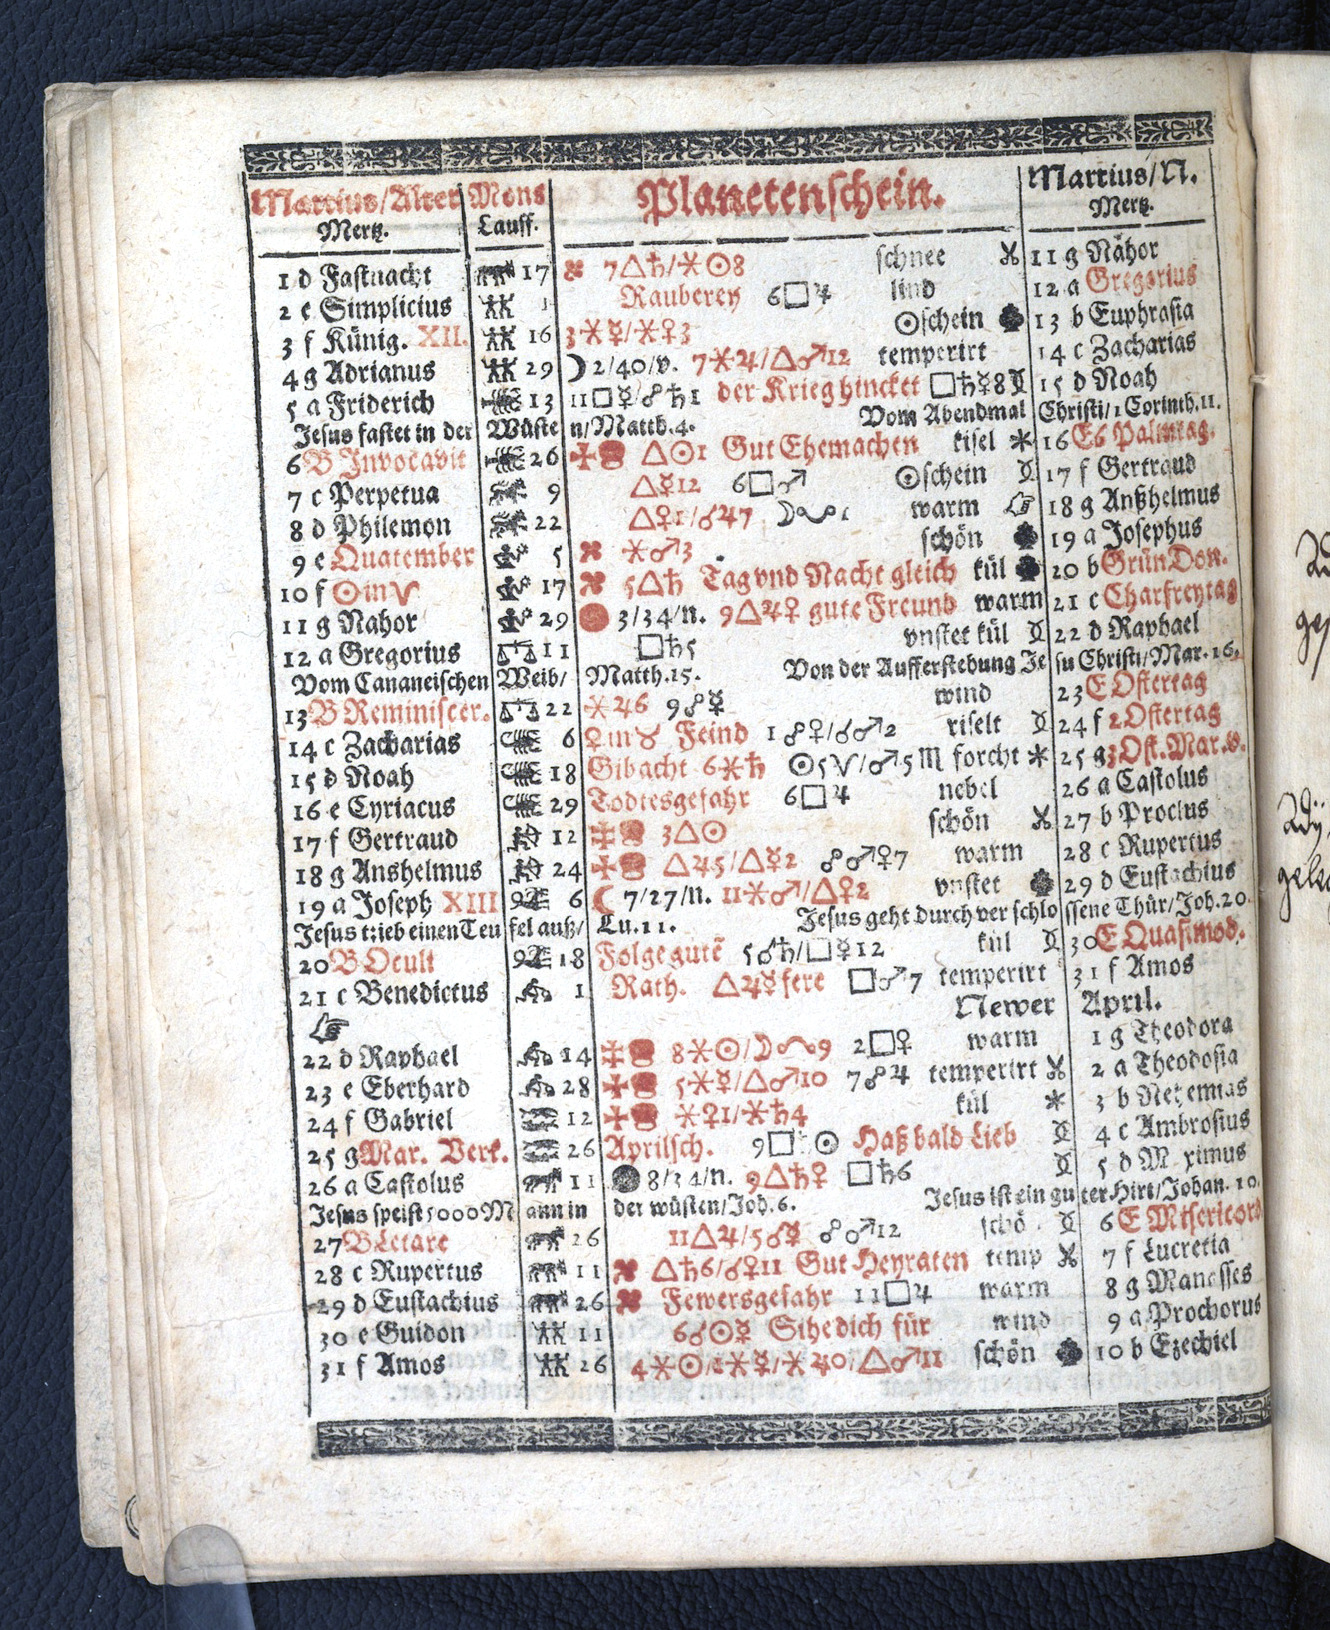 Martius/Alter Mons Planetenschein. Martius/N.
Mertz. Lauff. Mertz.
1 d Fastnacht 17 7△♄/⚹☉8 schnee 11 g Nahor
2 e Simplicius Rauberey 6□♃ lind 12 a Gregorius
3 f Künig. XII. 16 3⚹☿/⚹♀3 ☉schein 13 b Euphrasia
4 g Adrianus 29 ☽2/40/v. 7⚹♃/△♂12 temperirt 14 c Zacharias
5 a Friderich 13 11□☿/☍♄1 der Krieg hincket □♄☿8 15 d Noah
Jesus fastet in der Wüste n/Matth.4. Vom Abendmal Christi/1 Corinth.11.
6 B Invocavit 26 △☉1 Gut Ehemachen kisel 16 E6 Palmtag.
7 c Perpetua 9 △☿12 6□♂ ☉schein 17 f Gertraud
8 d Philemon 22 △♀1/☌♃7 warm 18 g Anßhelmus
9 e Quatember 5 ⚹♂3 schön 19 a Josephus
10 f ☉in♈ 17 5△♄ Tag vnd Nacht gleich kül 20 b GrünDon.
11 g Nahor 29 3/34/n. 9△♃♀ gute Freund warm 21 c Charfreytag
12 a Gregorius 11 □♄5 vnstet kül 22 d Raphael
Vom Cananeischen Weib/ Matth.15. Von der Aufferstehung Je su Christi/Mar.16.
13 B Reminiscer. 22 ⚹♃6 9☍☿ wind 23 E Ostertag
14 c Zacharias 6 ♀in♉ Feind 1☍♀/☌♂2 riselt 24 f 2.Ostertag
15 d Noah 18 Gibacht 6⚹♄ ☉5♈/♂5♏ forcht 25 g 3Ost.Mar.V.
16 e Cyriacus 29 Todtesgefahr 6□♃ nebel 26 a Castolus
17 f Gertraud 12 3△☉ schön 27 b Proclus
18 g Anshelmus 24 △♃5/△☿2 ☍♂♀7 warm 28 c Rupertus
19 a Joseph XIII 6 ☾7/27/n. 11⚹♂/△♀2 vnstet 29 d Eustachius
Jesus trieb einen Teu fel auß/ Lu.11. Jesus geht durch verschlo ssene Thür/Joh.20.
20 B Oculi 18 Folge gutē 5☌♄/□☿12 kül 30 E Quasimod.
21 c Benedictus 1 Rath. △♃☿fere □♂7 temperirt 31 f Amos
☞ Newer April.
22 d Raphael 14 8⚹☉/☽☊9 2□♀ warm 1 g Theodora
23 e Eberhard 28 5⚹☿/△♂10 7☍♃ temperirt 2 a Theodosia
24 f Gabriel 12 ⚹♀1/⚹♄4 kül 3 b Nehemias
25 g Mar. Verk. 26 Aprilsch. Haß bald Lieb 4 c Ambrosius
26 a Castolus 11 8/34/n. 9△♄♀ □♄6 5 d
Jesus speist 5000 M ann in der wüsten/Joh.6. Jesus ist ein gu ter Hirt/Johan.10.
27 B Letare 26 11△♃/5☌☿ ☍♂12 6 E Misericord
28 c Rupertus 11 △♄6/☌♀11 Gut Heyraten temp 7 f Lucretia
29 d Eustachius 26 Fewersgefahr 11□♃ warm 8 g Manasses
30 e Guidon 11 6☌☉☿ Sihe dich für wind 9 a Prochorus
31 f Amos 26 4⚹☉/1⚹☿/⚹♃0/△♂11 schön 10 b Ezechiel